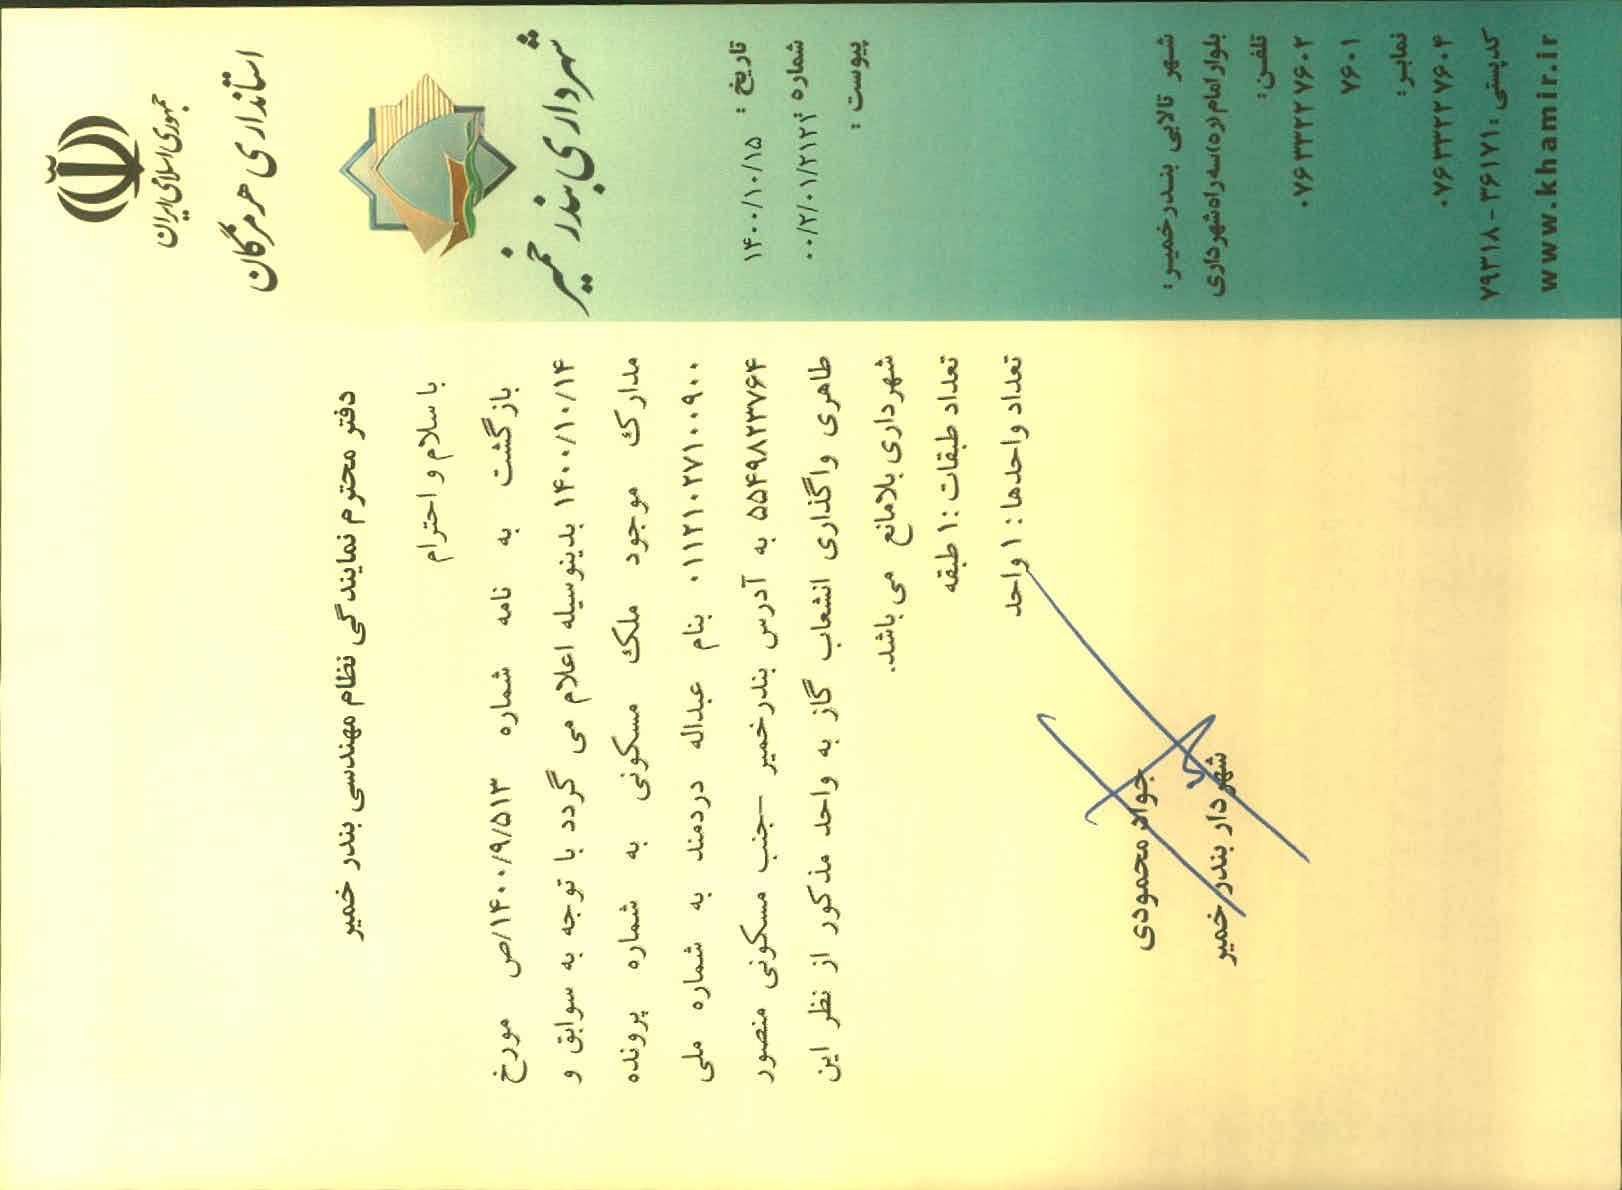 جمهوری اسلامی ایران
استانداری هرمزگان
شهرداری بندر خمیر
تاریخ : ۱۴۰۰/۱۰/۱۵
شماره : ۰۰/۲/۰۱/۲۱۲۲
پیوست :
دفتر محترم نمایندگی نظام مهندسی بندر خمیر
با سلام و احترام
بازگشت به نامه شماره ۱۴۰۰/۹/۵۱۳/ص مورخ
۱۴۰۰/۱۰/۱۴ بدینوسیله اعلام می گردد با توجه به سوابق و
مدارک موجود ملک مسکونی به شماره پرونده
۰۱۱۲۱۰۲۷۱۰۰۹۰۰ بنام عبداله دردمند به شماره ملی
۵۵۴۹۸۲۳۷۶۴ به آدرس بندرخمیر -جنب مسکونی منصور
طاهری واگذاری انشعاب گاز به واحد مذکور از نظر این
شهرداری بلامانع می باشد.
تعداد طبقات :۱ طبقه
تعداد واحدها : ۱ واحد
جواد محمودی
شهردار بندر خمیر
شهر تالابی بندرخمیر:
بلوار امام (ره) سه راه شهرداری
تلفن:
۰۷۶۳۳۲۲۷۶۰۲
۷۶۰۱
نمابر:
۰۷۶۳۳۲۲۷۶۰۴
کدپستی : ۳۶۱۷۱ - ۷۹۳۱۸
www.khamir.ir